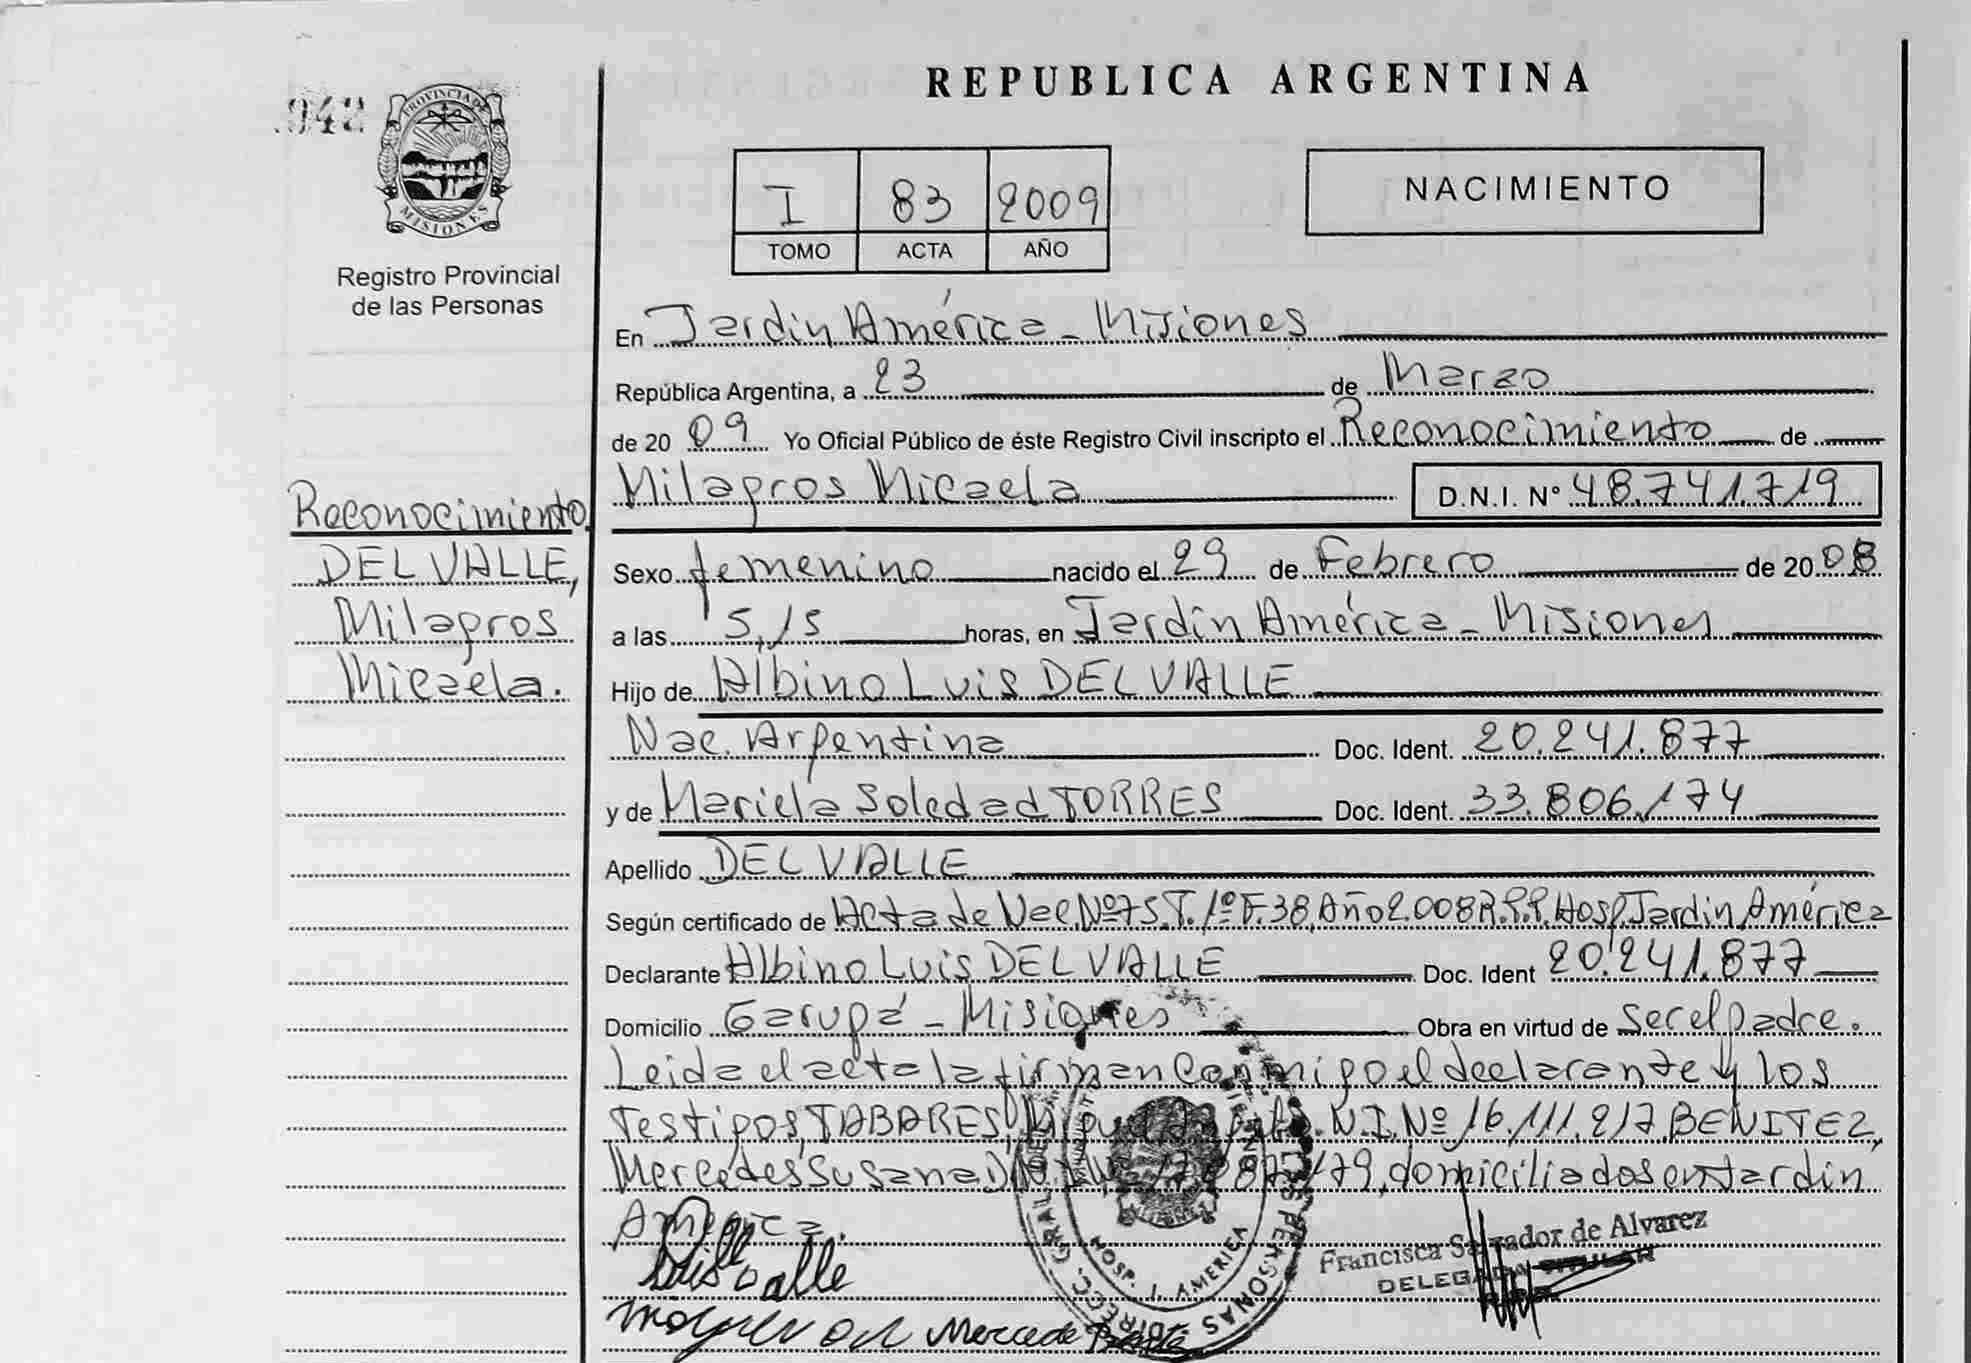 REPUBLICA ARGENTINA
942
PROVINCIA DE
MISIONES
Registro Provincial
de las Personas
I 83 2009
TOMO ACTA AÑO
NACIMIENTO
En Jardín América - Misiones
República Argentina, a 23 de Marzo
de 2009 Yo Oficial Público de éste Registro Civil inscripto el Reconocimiento de
Milagros Micaela D.N.I. Nº 48.741.719
Reconocimiento
DEL VALLE,
Milagros
Micaela.
Sexo femenino nacido el 29 de Febrero de 2008
a las 5,15 horas, en Jardín América - Misiones
Hijo de Albino Luis DEL VALLE
Nac. Argentina Doc. Ident. 20.241.877
y de Mariela Soledad TORRES Doc. Ident. 33.806.174
Apellido DEL VALLE
Según certificado de Acta de Nac. Nº 75. T. 1º F. 38, Año 2.008 R.P.P. Hosp. Jardín América
Declarante Albino Luis DEL VALLE Doc. Ident 20.241.877
Domicilio Garupá - Misiones Obra en virtud de Ser el padre.
Leida el acta la firman Conmigo el declarante y los
Testigos, TABARES, D.N.I. Nº 16.111.217. BENITEZ,
Mercedes Susana domiciliados en Jardín
América.
Francisca Salvador de Alvarez
DELEGADA TITULAR
HOSP. J. AMERICA